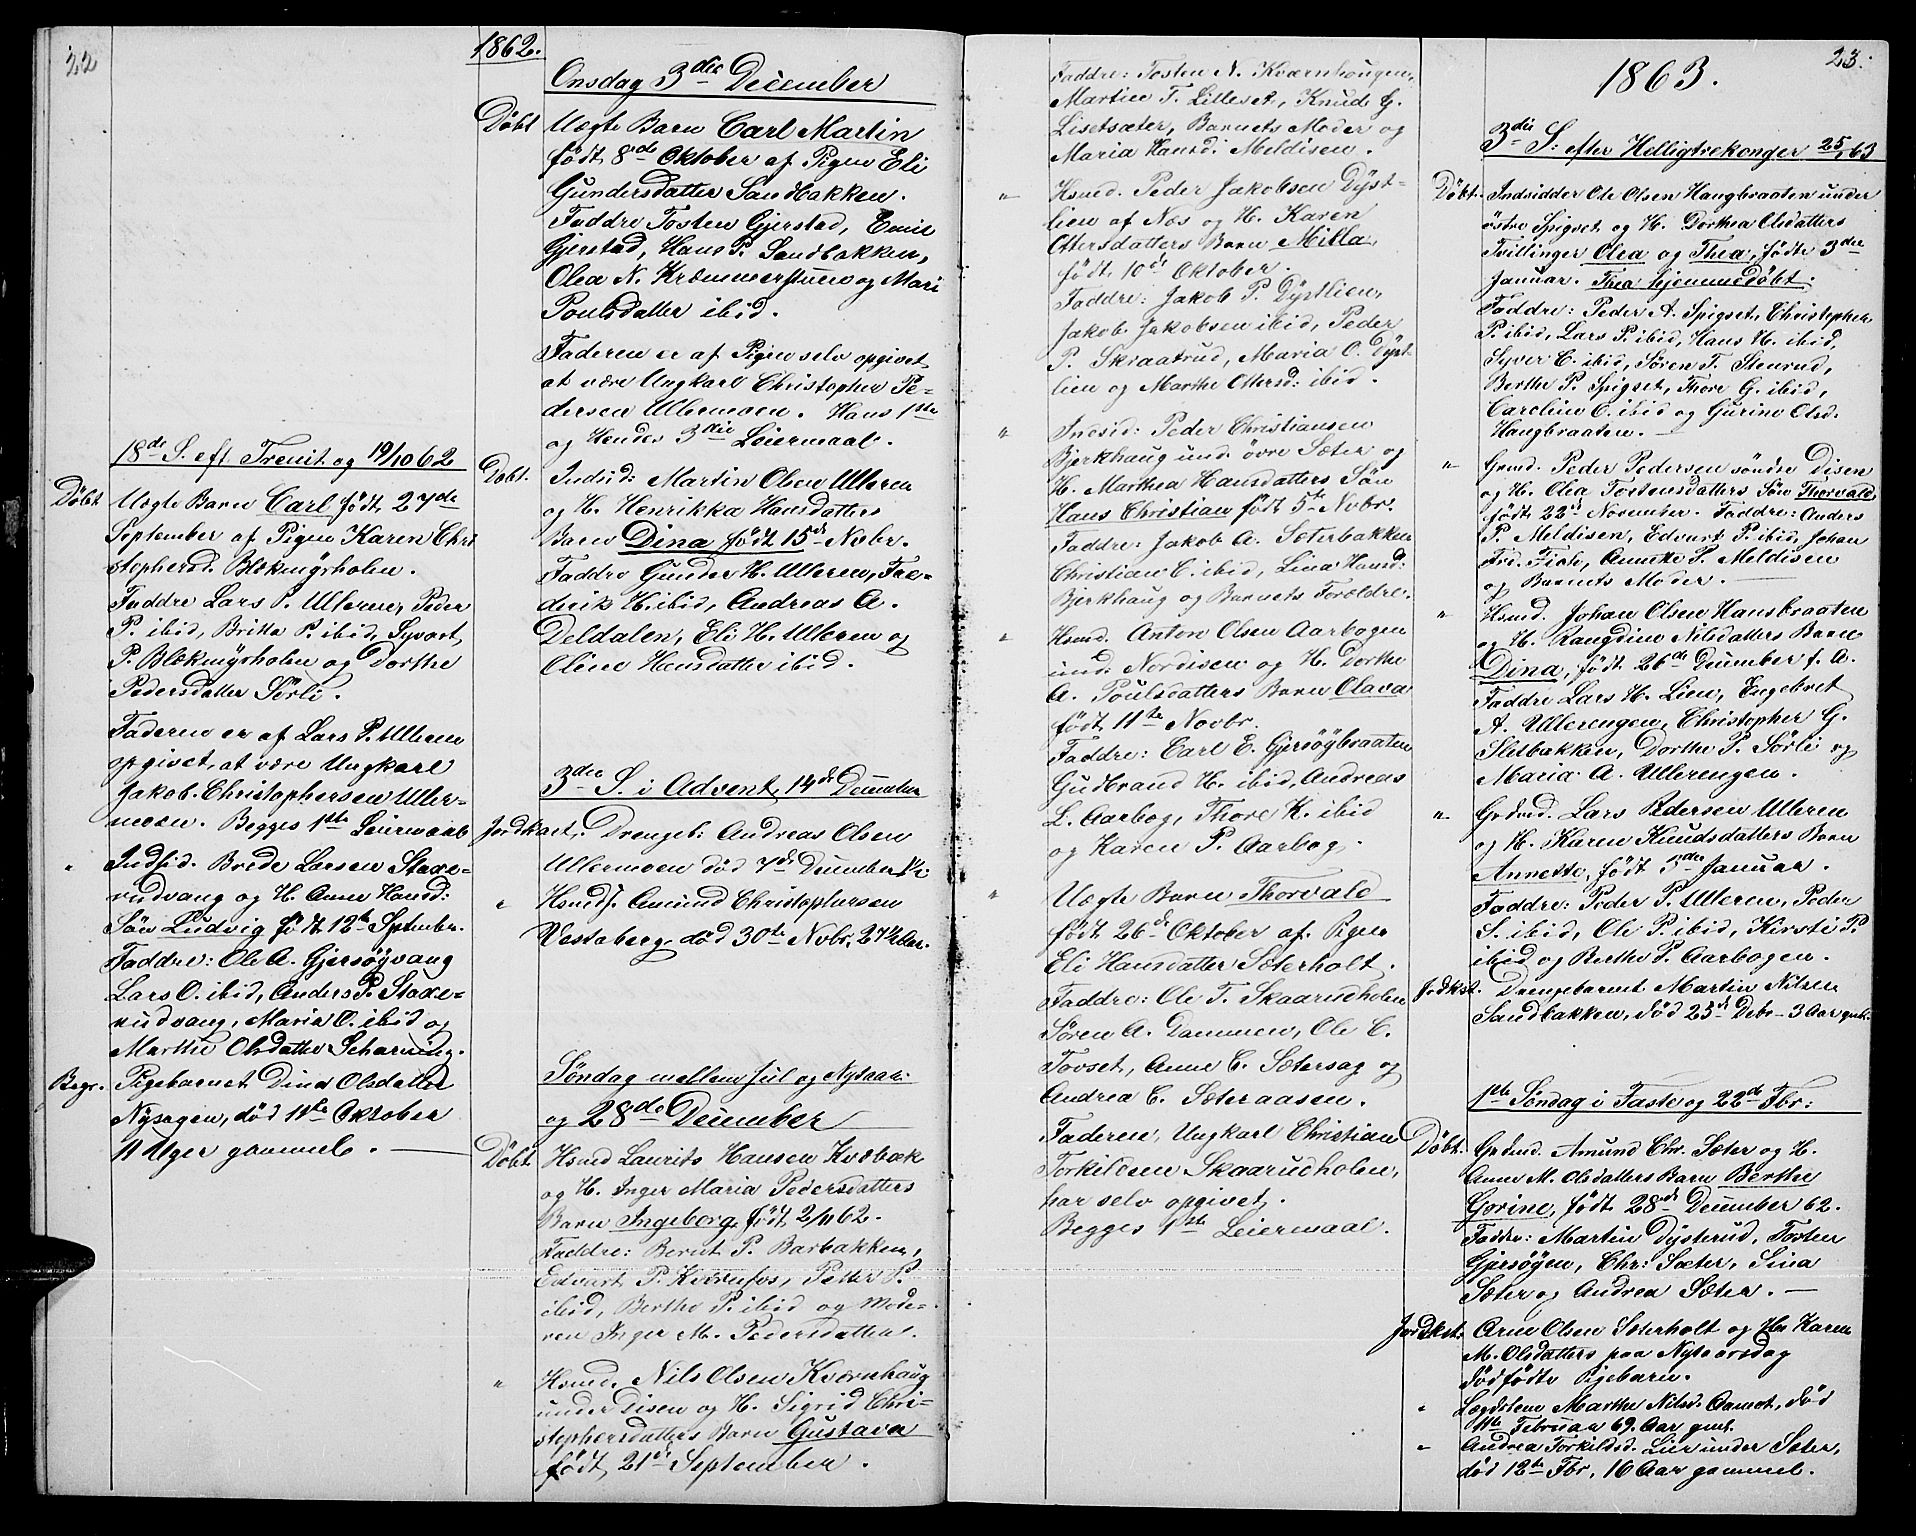 22
18de S. eft Trenit og 19/10 62
Döbt Uægte Barn Carl født 27de
September af Pigen Karen Chri
stophersd. Blekmyrholen.
Faddre Lars P. Ulleren, Peder
P. ibid, Britta P. ibid, Syvart
P. Blækmyrholen og Dorthe
Pedersdatter Sørli.
Faderen er af Lars P. Ulleren
opgivet, at være Ungkarl
Jakob Christophersen Uller-
moen. Begges 1ste Leiermaal
" Indsid. Brede Larsen Staxe-
rudvang og H. Anne Hansd:
Sön Ludvig födt 12te Septembr.
Faddre: Ole A. Gjersøgvang
Lars O. ibid, Anders P. Staxe-
rudvang, Maria O. ibid og
Marthe Olsdatter Scharning.
Begr. Pigebarnet Dina Olsdatter
Nysagen, död 11te Oktober
11 Uger gammel.
1862.
Onsdag 3die December
Döbt Uægte Barn Carl Martin
født 8de Oktober af Pigen Eli
Gundersdatter Sandbakken.
Faddre Tosten Gjerstad, Emil
Gjerstad, Hans P. Sandbakken,
Olea N. Kræmmerstuen og Mari
Poulsdatter ibid.
Faderen er af Pigen selv opgivet
at være Ungkarl Christopher Pe-
dersen Ullermoen. Hans 1ste
og Hendes 3die Leiermaal.
Döbt. Indsid: Martin Olsen Ulleren
og H. Henrikka Hansdatters
Barn Dina födt 15de Novbr.
Faddre Gunder H. Ulleren, Fre-
derik H. ibid, Andreas A.
Deldalen, Eli H. Ulleren og
Oline Hansdatter ibid.
3die S. i Advent, 14de December
Jordkast. Drengeb: Andreas Olsen
Ullermoen død 7de December 1½
" Hsmds. Amund Christophersen
Vestaberg, död 30te Novbr. 27½ Aar.
Søndag mellem Jul og Nytaar:
og 28de December
Döbt Hsmd Laurits Hansen Kvebæk
og H. Inger Maria Pedersdatters
Barn Ingeborg, født 2/11 62.
Faddre: Bernt P. Barbakken,
Edvart P. Kvernfos, Petter P.
ibid, Berthe P. ibid og Mode-
ren Inger M. Pedersdatter.
" Hsmd. Nils Olsen Kværnhaug
under Disen og H. Sigrid Chri-
stophersdatters Barn Gustava
født 21de September.
Faddre: Tosten N. Kværnhougen,
Martin T. Lilleset, Knud G.
Lisetsæter, Barnets Moder og
Maria Hansd: Meldisen.
" Hsmd. Peder Jakobsen Dyst-
lien af Næs og H. Karen
Ottersdatters Barn Milla,
født 10de Oktober.
Faddre: Jakob P. Dystlien,
Jakob Jakobsen ibid, Peder
P. Skraatrud, Maria O. Dyst-
lien og Marthe Ottersd: ibid.
" Indsid: Peder Christiansen
Bjerkhaug under øvre Sæter og
H. Marthea Hansdatters Sön
Hans Christian født 5te Novbr.
Faddre: Jakob A. Sæterbakken
Christian C. ibid, Lina Hansd:
Bjerkhaug og Barnets Forældre.
" Hsmd. Anton Olsen Aarbogen
und: Nordisen og H. Dorthe
A. Poulsdatters Barn Olava
født 11te Novbr.
Faddre: Carl E. Gjersøgbraaten
Gudbrand H. ibid, Andreas
L. Aarbog, Thore K. ibid
og Karen P. Aarbog.
" Uægte Barn Thorvald
født 26de Oktober af Pigen
Eli Hansdatter Sæterholt.
Faddre: Ole T. Skaarudholen
Sören A. Dammen, Ole C.
Tovset, Anne C. Sætersag og
Andrea C. Sæteraasen.
Faderen, Ungkarl Christian
Torkildsen Skaarudholen,
har selv opgivet.
Begges 1ste Leiermaal.
23.
1863.
3die S: efter Helligtrekonger 25/1 63
Döbt. Indsidder Ole Olsen Haugbraaten under
östre Spigset og H. Dorthea Olsdatters
Tvillinger Olea og Thea, födte 3die
Januar. Thea hjemmedöbt.
Faddre: Peder A. Spigset, Christopher
P. ibid, Lars P. ibid, Hans H. ibid,
Syver C. ibid, Sören T. Stenrud,
Berthe P. Spigset, Thore G. ibid,
Caroline O. ibid og Gurine Olsd.
Haugbraaten.
" Grmd. Peder Pedersen söndre Disen
og H. Olea Tostensdatters Sön Thorvald
født 22de November. Faddre: Anders
P. Meldisen, Edvart P. ibid, Johan
Fr. Fiele, Annike P. Meldisen
og Barnets Moder.
" Hsmd. Johan Olsen Hansbraaten
og H. Rangdine Nilsdatters Barn
Dina, født 26de December f. A.
Faddre Lars H. Lien, Engebret
A. Ullerengen, Christopher G.
Slitbakken, Dorthe P. Sörli og
Maria A. Ullerengen.
" Grdmd. Lars Pedersen Ulleren
og H. Karen Knudsdatters Barn
Annette, født 5te Januar.
Faddre: Peder P. Ulleren, Peder
S. ibid, Ole P. ibid, Kirsti P.
ibid og Berthe P. Aarbogen.
Jordkst. Drengebarnet Martin Nilsen
Sandbakken, död 25de Debr. 3 Aar gml.
1ste Søndag i Faste og 22de Fbr:
Döbt. Grdmd. Amund Chr. Sæter og H.
Anne M. Olsdatters Barn Berthe
Gorine, født 28de December 62.
Faddre: Martin Dysterud, Tosten
Gjersøgen, Chr: Sæter, Lina
Sæter og Andrea Sæter.
Jordkst. Arne Olsen Sæterholt og Hu Karen
M. Olsdatters paa Nytaarsdag
dödfödte Pigebarn.
" Lægdslem Marthe Nilsd. Aamot, död
11te Februar 69. Aar gml.
" Andrea Torkildsd. Lier under Sæter,
död 12te Fbr, 16 Aar gammel.